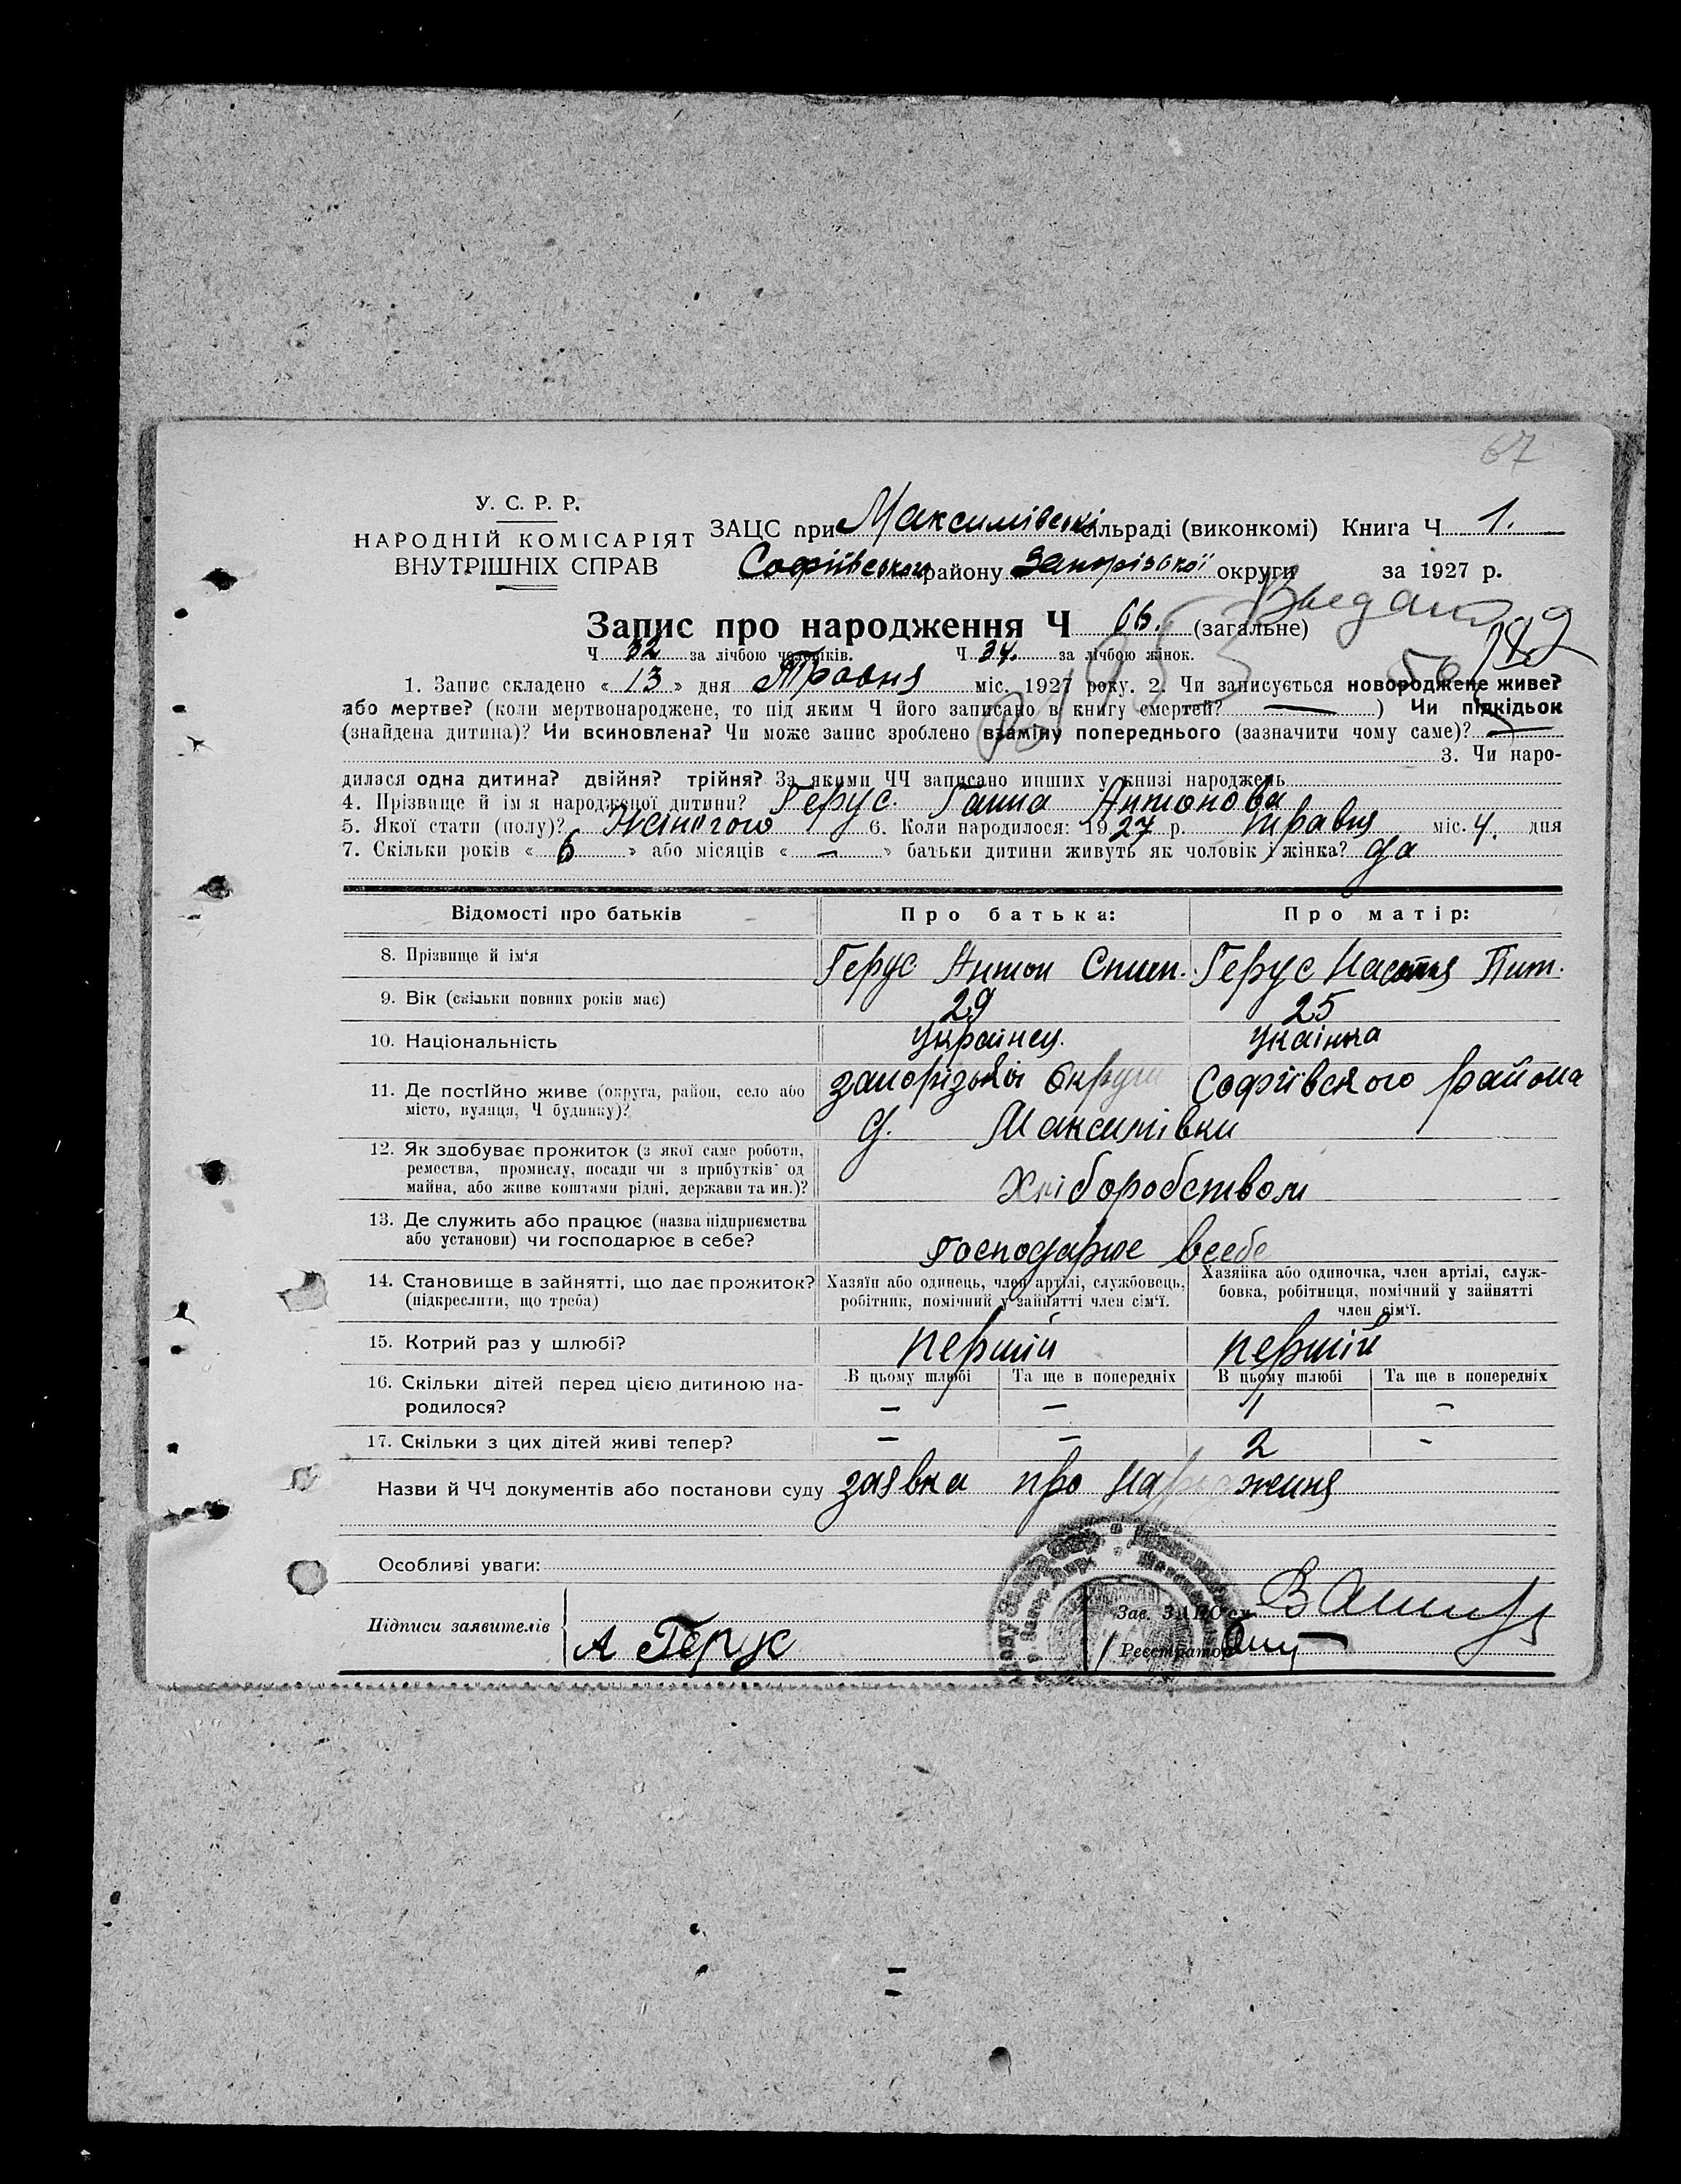 67
У. С. Р. Р.
НАРОДНІЙ КОМІСАРІЯТ
ВНУТРІШНІХ СПРАВ
ЗАЦС при Максимівські сільраді (виконкомі) Книга Ч 1.
Софіївського району Запорізької округи за 1927 р.
Запис про народження Ч 66. (загальне)
Ч 32 за лічбою чоловіків. Ч 34. за лічбою жінок.
1. Запис складено « 13 » дня Травня міс. 1927 року. 2. Чи записується новороджене живе?
або мертве? (коли мертвонароджене, то під яким Ч його записано в книгу смертей? — ) Чи підкідьок
(знайдена дитина)? Чи всиновлена? Чи може запис зроблено взаміну попереднього (зазначити чому саме)? —
3. Чи наро-
дилася одна дитина? двійня? трійня? За якими ЧЧ записано инших у книзі народжень
4. Прізвище й ім я народженої дитини? Герус. Ганна Антонова
5. Якої стати (полу)? Жіночого 6. Коли народилося: 1927 р. травня міс. 4. дня
7. Скільки років « 6 » або місяців « — » батьки дитини живуть як чоловік і жінка? да
Відомості про батьків Про батька: Про матір:
8. Прізвище й ім'я Герус Антон Спин. Герус Настя Пит.
9. Вік (скільки повних років має) 29 25
10. Національність Українец. Укаінка
11. Де постійно живе (округа, район, село або запорізькоі Округи Софіївского района
місто, вулиця, Ч будинку)? д. Максимівки
12. Як здобуває прожиток (з якої саме роботи,
ремества, промислу, посади чи з прибутків од
майна, або живе коштами рідні, держави та ин.)? Хліборобством
13. Де служить або працює (назва підприємства
або установи) чи господарює в себе? господарює всебе
14. Становище в зайнятті, що дає прожиток? Хазяїн або одинець, член артілі, службовець, Хазяйка або одиночка, член артілі, служ-
(підкреслити, що треба) робітник, помічний у зайнятті член сім'ї. бовка, робітниця, помічний у зайнятті
член сім'ї.
15. Котрий раз у шлюбі? першій першій
16. Скільки дітей перед цією дитиною на- В цьому шлюбі Та ще в попередніх В цьому шлюбі Та ще в попередніх
родилося? — — 1 –
17. Скільки з цих дітей живі тепер? — — 2 –
Назви й ЧЧ документів або постанови суду заявка про народження
Особливі уваги:
Підписи заявителів А Герус
Зав. ЗАЦС'ом
Реєстратор